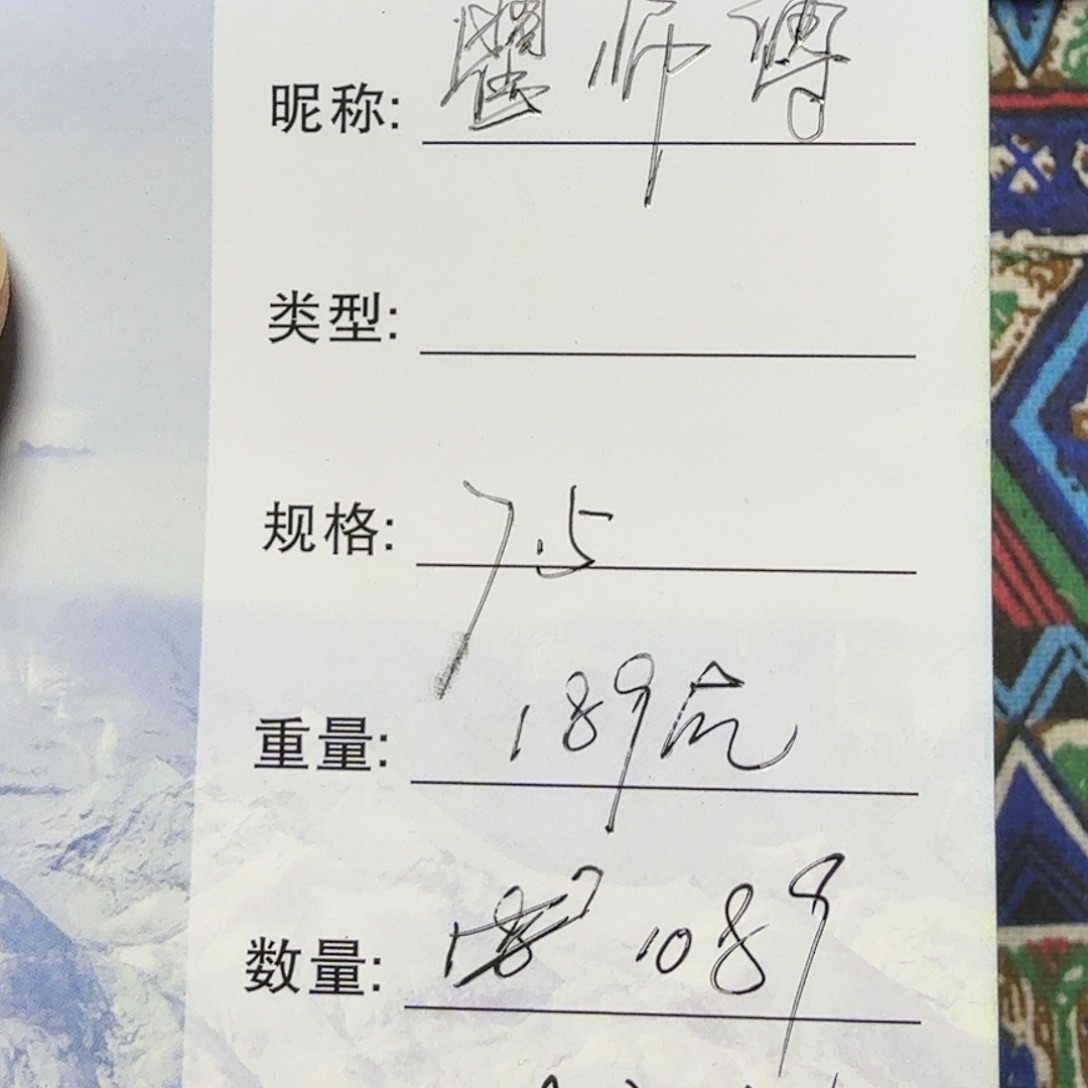 昵称: 瞿师傅
类型:
规格: 7.5
重量: 189克
数量: 1089